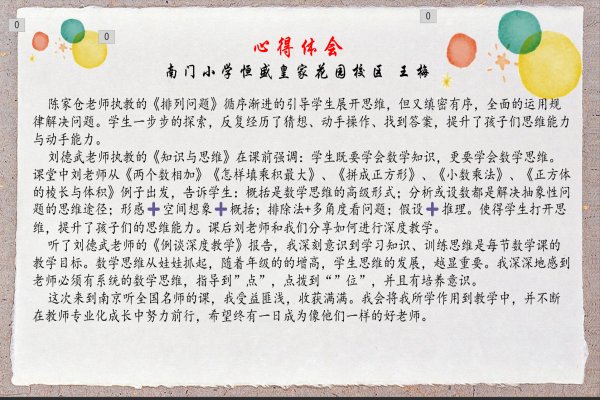 0
0
0
心得体会
南门小学恒盛皇家花园校区 王梅
陈家仓老师执教的《排列问题》循序渐进的引导学生展开思维，但又缜密有序，全面的运用规
律解决问题。学生一步步的探索，反复经历了猜想、动手操作、找到答案，提升了孩子们思维能力
与动手能力。
刘德武老师执教的《知识与思维》在课前强调：学生既要学会数学知识，更要学会数学思维。
课堂中刘老师从《两个数相加》《怎样填乘积最大》、《拼成正方形》、《小数乘法》、《正方体
的棱长与体积》例子出发，告诉学生：概括是数学思维的高级形式；分析或设数都是解决抽象性问
题的思维途径；形感➕空间想象➕概括；排除法+多角度看问题；假设➕推理。使得学生打开思
维，提升了孩子们的思维能力。课后刘老师和我们分享如何进行深度教学。
听了刘德武老师的《例谈深度教学》报告，我深刻意识到学习知识、训练思维是每节数学课的
教学目标。数学思维从娃娃抓起，随着年级的的增高，学生思维的发展，越显重要。我深深地感到
老师必须有系统的数学思维，指导到”点”，点拨到“”位”，并且有培养意识。
这次来到南京听全国名师的课，我受益匪浅，收获满满。我会将我所学作用到教学中，并不断
在教师专业化成长中努力前行，希望终有一日成为像他们一样的好老师。